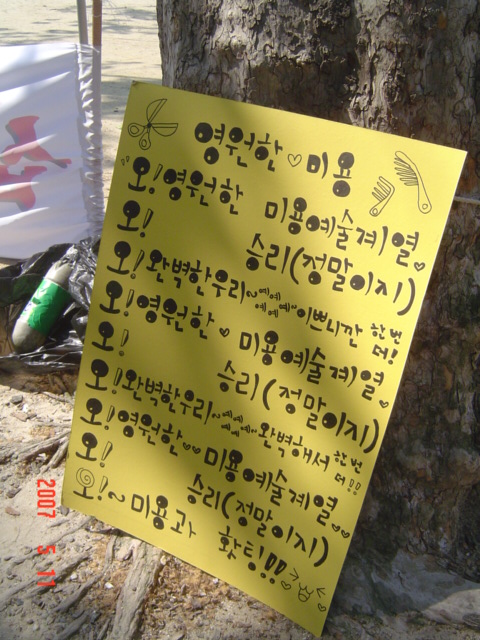 영원한♡미용
"오!영원한 미용예술계열♡
오! 승리(정말이지)
오!완벽한우리~예예예예예"이쁘니깐 한번더!
오!영원한♡미용예술계열♡
오! 승리(정말이지)
오!완벽한우리~예예예예예"완벽해서 한번더!!
오!영원한♡♡미용예술계열♡♡
오! 승리(정말이지)
오!~미용과 홧팅!!
2007 5 11